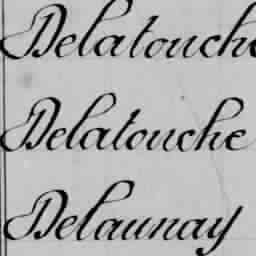 Delatouche
Delatouche
Delaunay